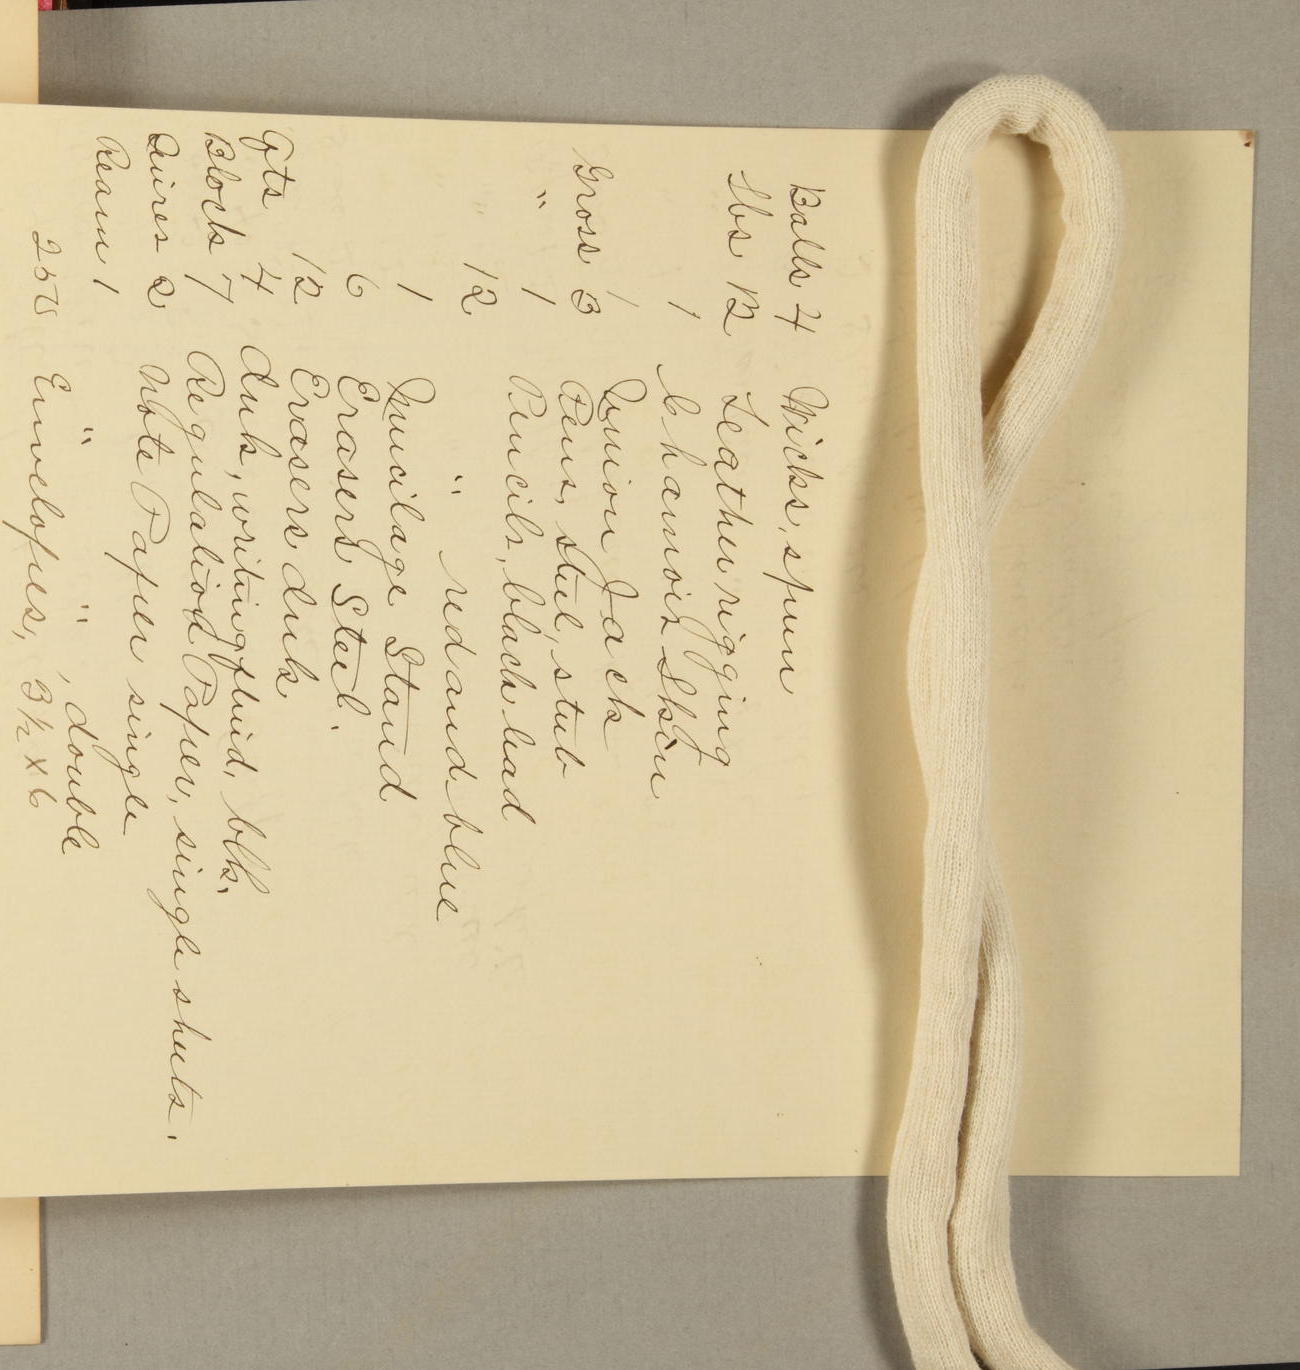 Balls 4 Wicks, spun
Lbs 12 Leather rigging
1 Chamois Skin
1 Union Jack
Gross 3 Pens, steel, stub
" 1 Pencils, black lead
" 12 " red and blue
1 Mucilage Stand
6 Erasers Steel.
12 Erasers Ink
Qts 4 Ink, writing fluid, blk.
Block 7 Regulation Paper, single sheets.
Quires 2 Note Paper single
Ream 1 " " , double
250 Envelopes, 3½ x 6